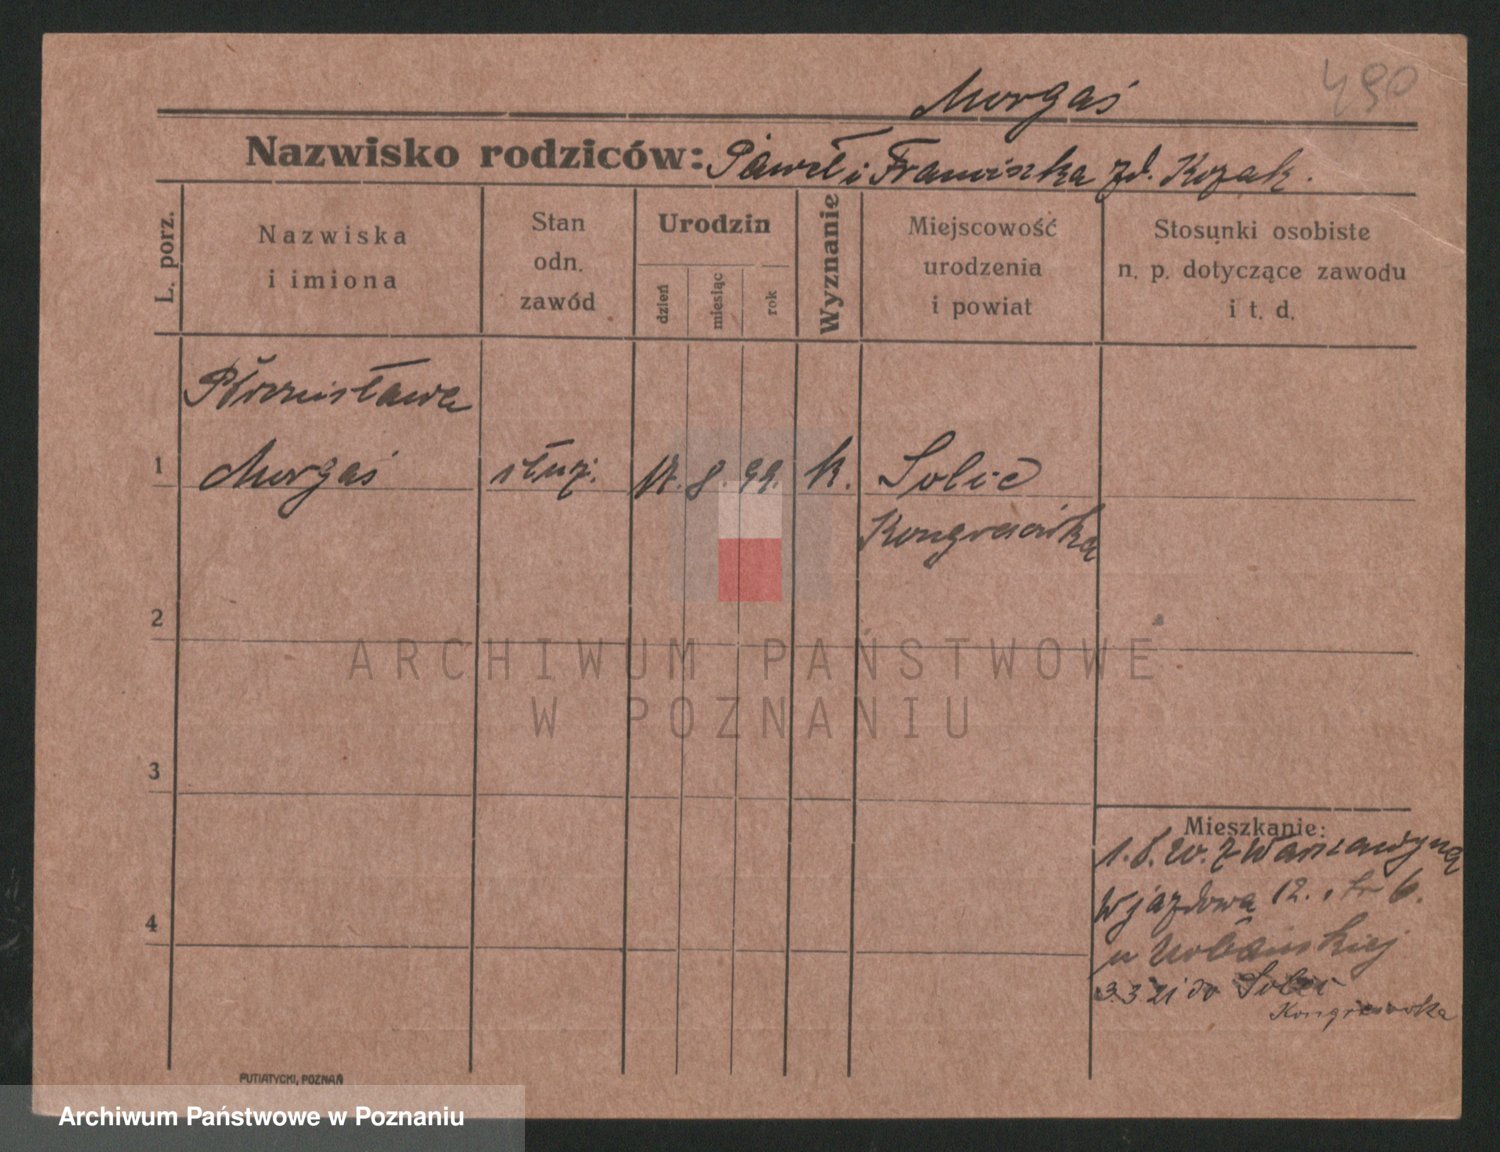 490
Morgaś
Nazwisko rodziców: Paweł i Franciszka zd. Kozak.
L. porz.
Nazwiska
i imiona
Stan
odn.
zawód
Urodzin
dzień
miesiąc
rok
Wyznanie
Miejscowość
urodzenia
i powiat
Stosunki osobiste
n. p. dotyczące zawodu
i t. d.
1
Morgaś służ. 8. 99. k. Solec
Kongresówka
2
ARCHIWUM PAŃSTWOWE
W POZNANIU
3
Mieszkanie:
z Warszawy na
4
Wjazdowa 12. str 6.
u Urbańskiej
3.3 21 do Solec
Kongresówka
PUTIATYCKI, POZNAŃ
Archiwum Państwowe w Poznaniu